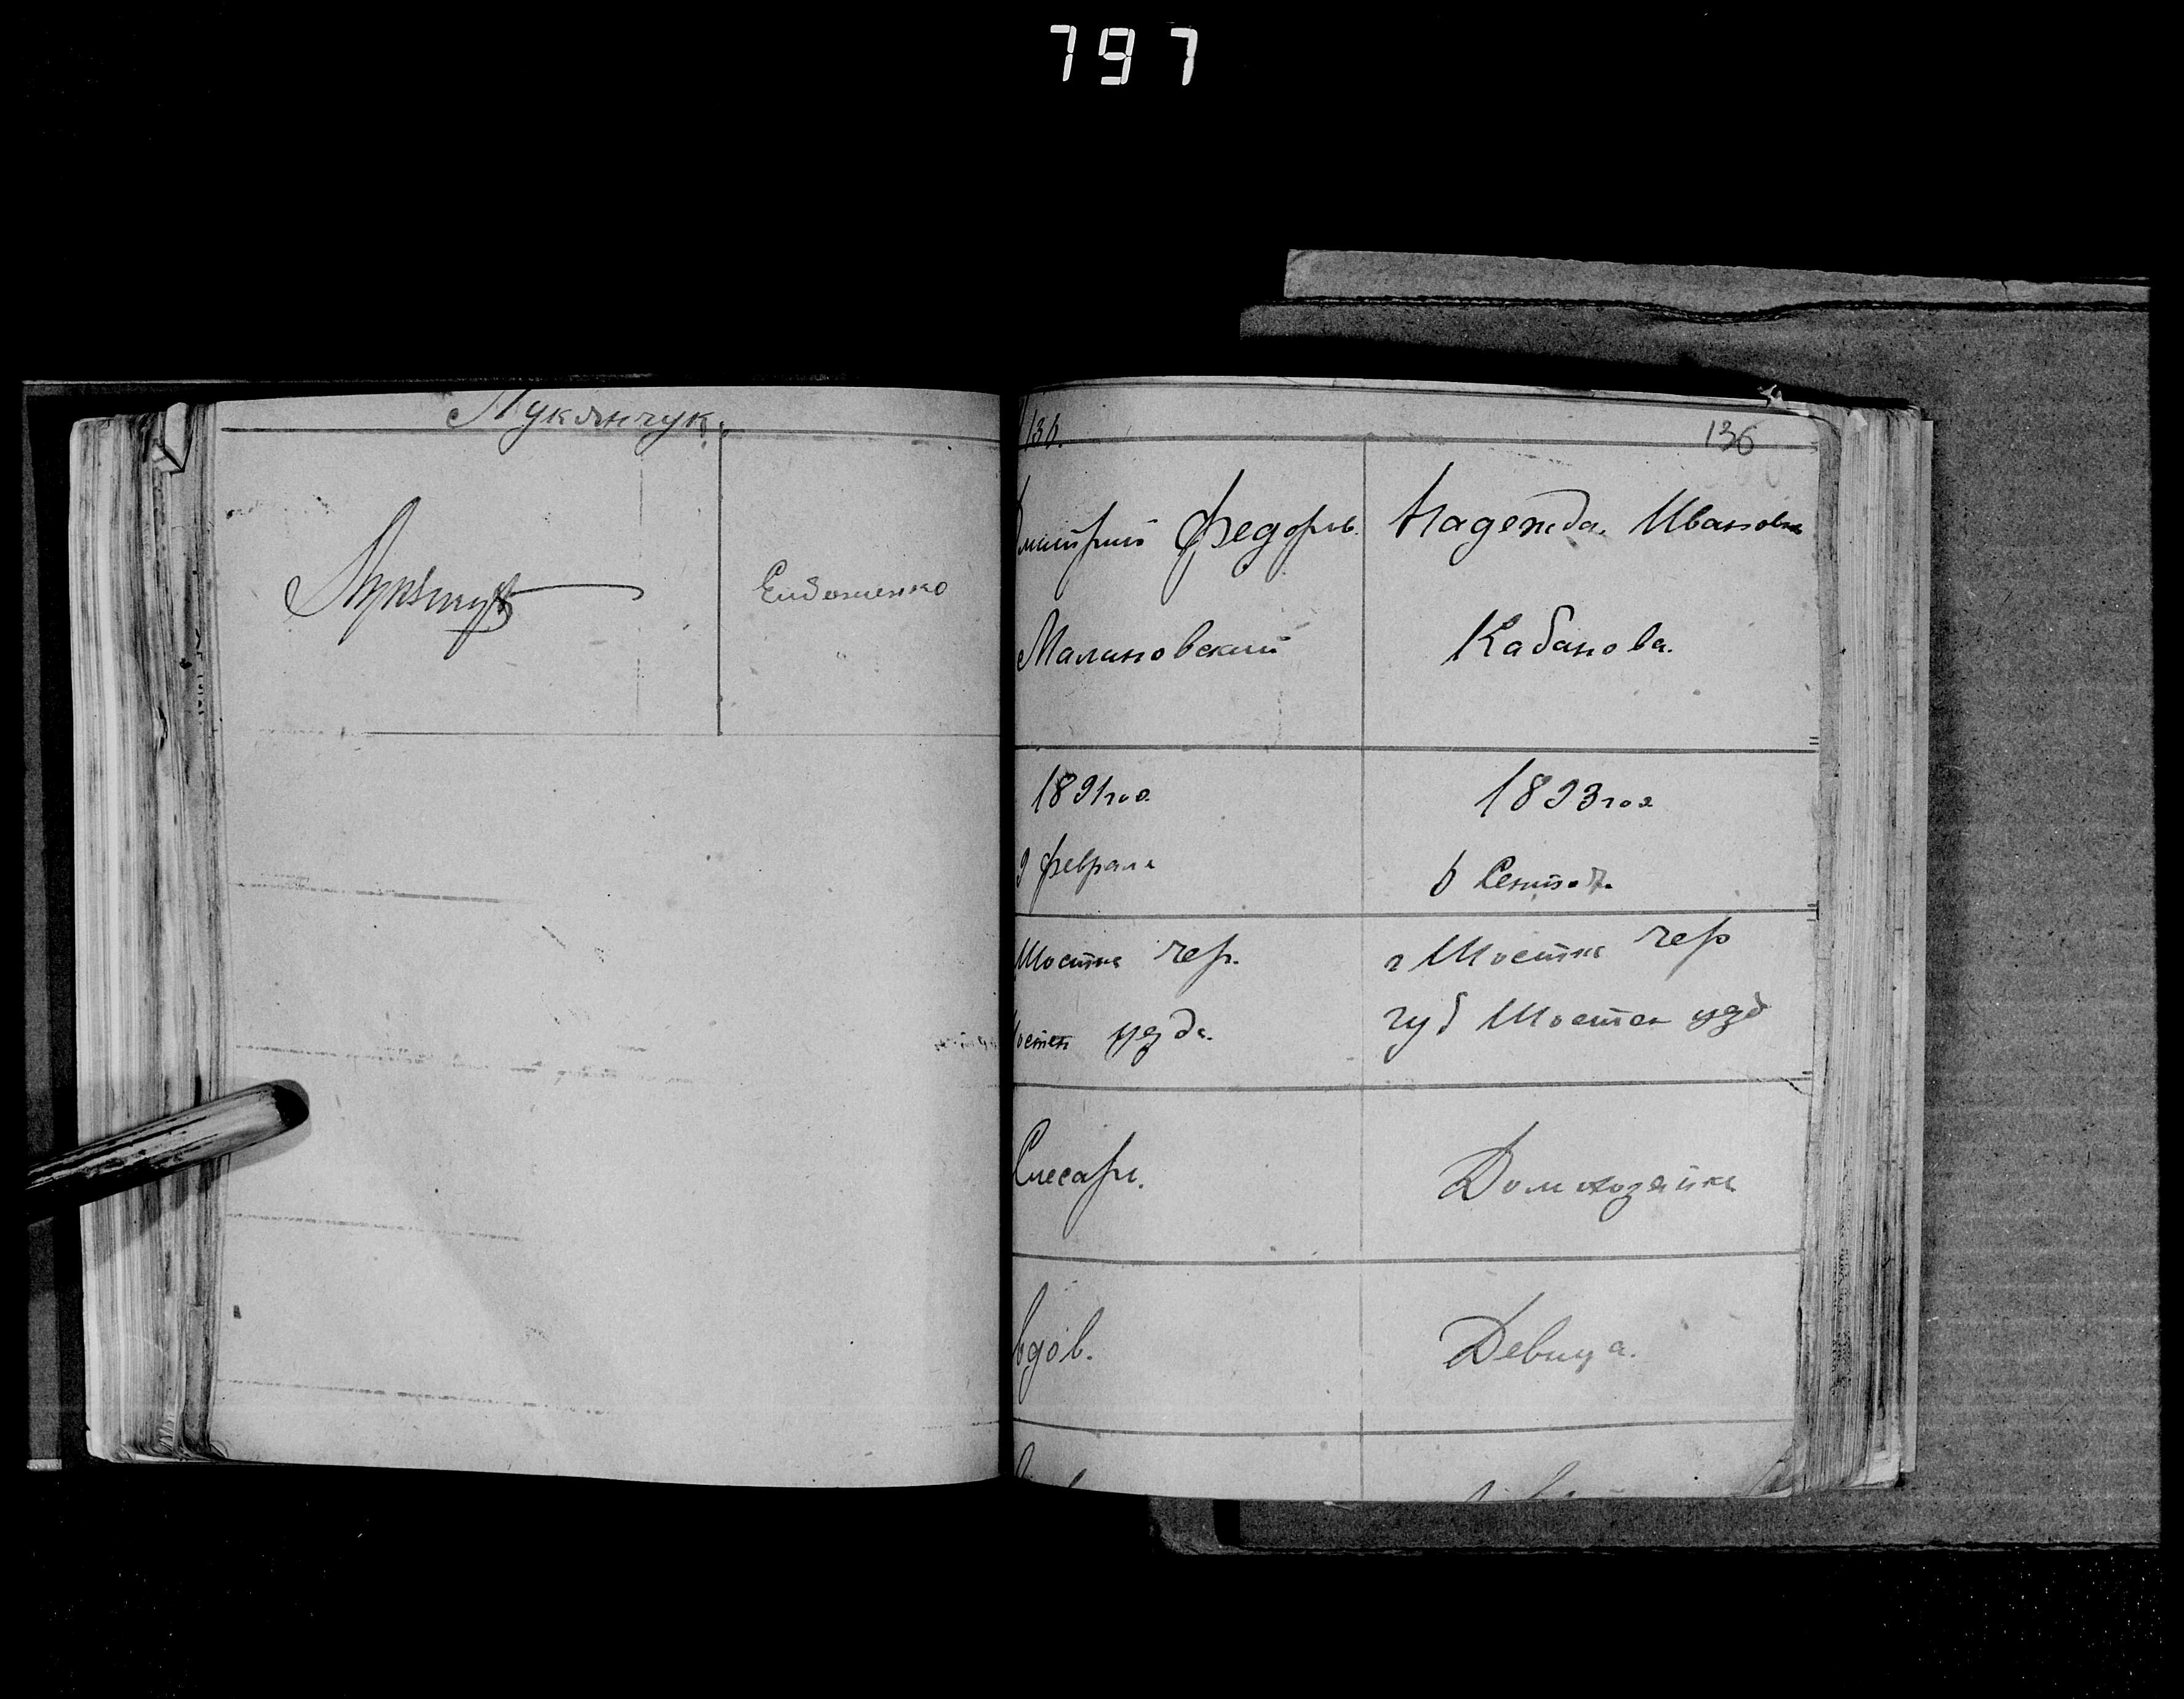 797
Лукянчук.
Лукянчук
Евдошенко
138.
136
Дмитрий Федоров.
Малиновский
Надежда Ивановна
Кабанова.
1891 год
9 февраля
1893 год
6 Сентя.
Шостка чер.
уезда.
г Шостка чер
губ Шостен уезд
Слесарь.
Домохозяйка
вдов.
Девица.